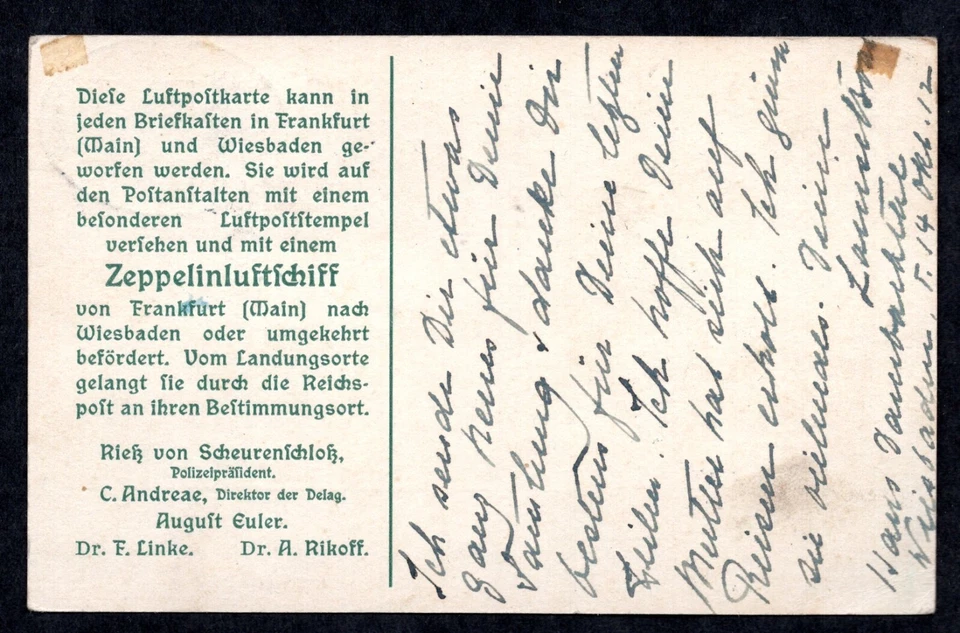 Diese Luftpostkarte kann in
jeden Briefkasten in Frankfurt
(Main) und Wiesbaden ge-
worfen werden. Sie wird auf
den Postanstalten mit einem
besonderen Luftpoststempel
versehen und mit einem
Zeppelinluftschiff
von Frankfurt (Main) nach
Wiesbaden oder umgekehrt
befördert. Vom Landungsorte
gelangt sie durch die Reichs-
post an ihren Bestimmungsort.
Rieß von Scheurenschloß,
Polizeipräsident.
C. Andreae, Direktor der Delag.
August Euler.
Dr. F. Linke. Dr. A. Rikoff.
Ich sende Dir etwas
ganz neues für Deine
Samlung & danke Dir
bestens für Deine letzten
Zeilen. Ich hoffe Deine
Mutter hat sich auf
Reisen erholt. Ich
sie vielmals. Dein
Hans
Wiesbaden, 14 Okt. 12